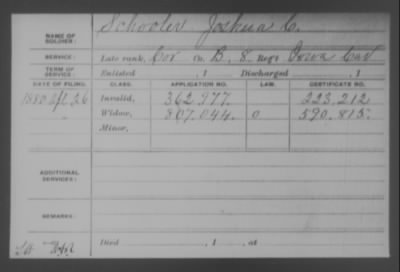 NAME OF SOLDIER: Schooler Joshua C.
SERVICE: Late rank, Cor Co. B, 8 Reg't Iowa Cav
TERM OF SERVICE: Enlisted , 1 Discharged , 1
DATE OF FILING. CLASS. APPLICATION NO. LAW. CERTIFICATE NO.
1880 Apl. 26 Invalid, 362.977 223.212
" Widow, 807.044 O 590.815
Minor,
ADDITIONAL SERVICES:
REMARKS:
Died , 1 , at